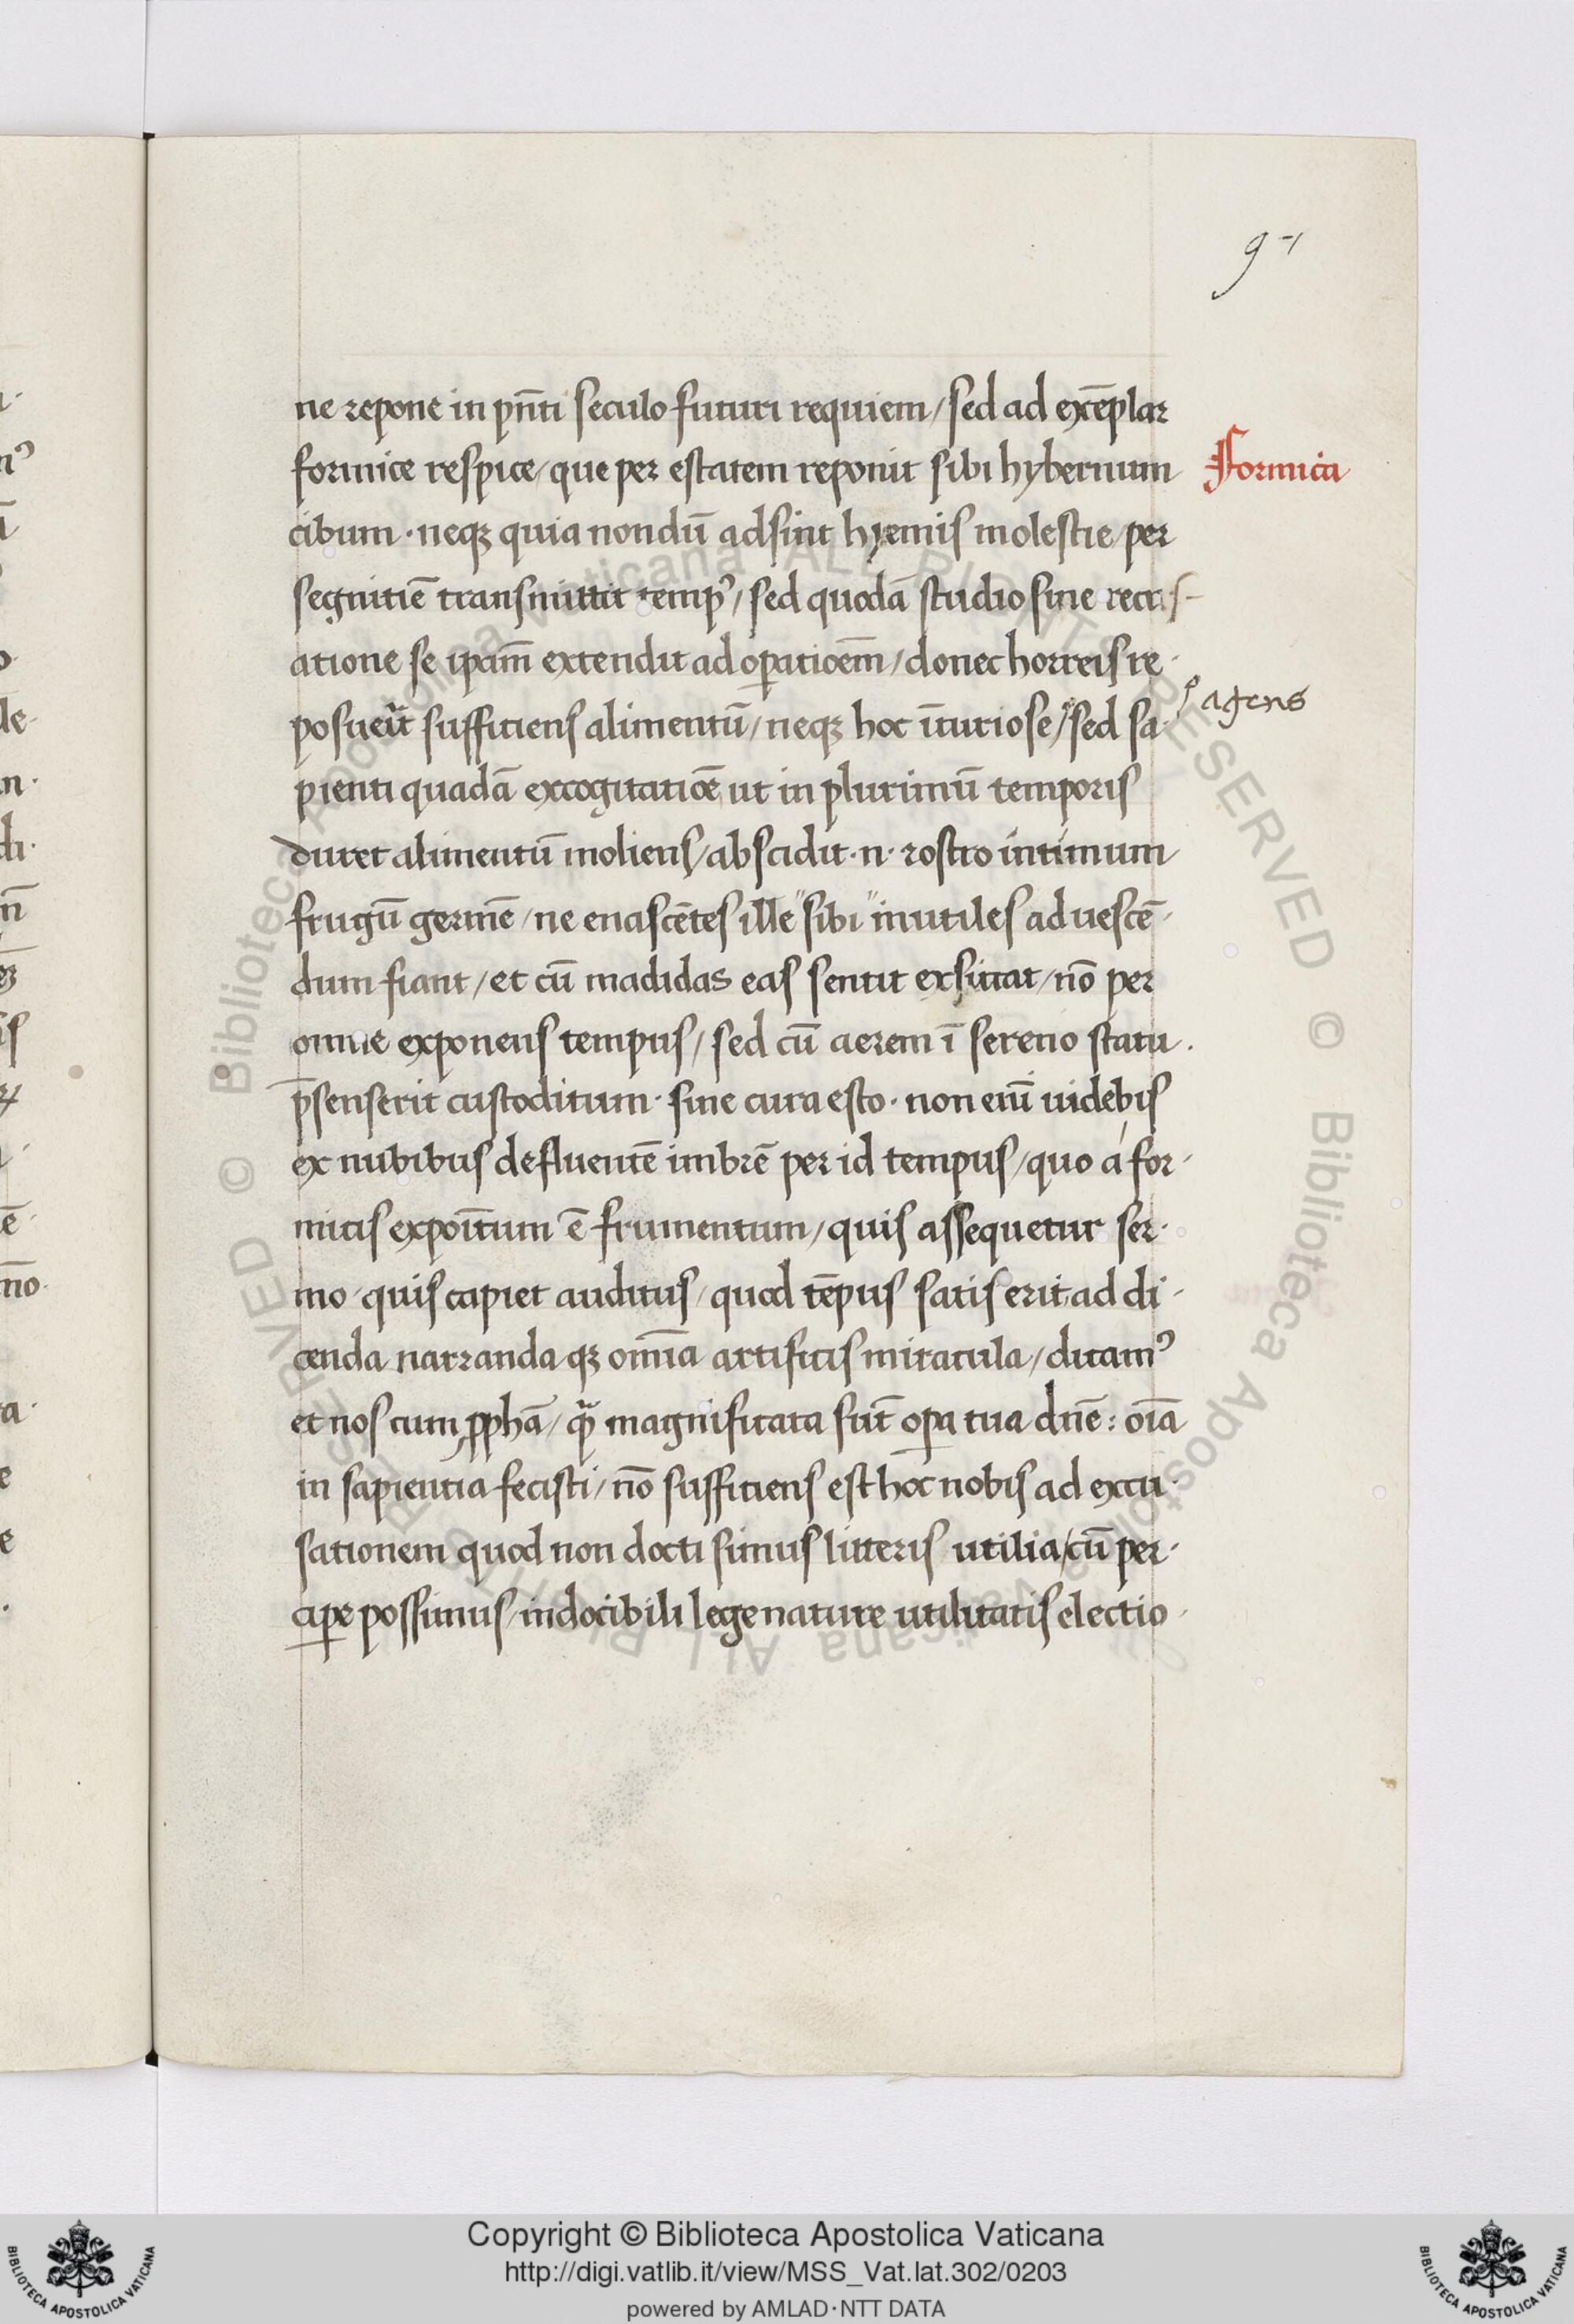 97
ne repone in pn̄ti seculo futuri requiem / sed ad exēplar
formice respice / que per estatem reponit sibi hybernum
Formica
cibum · neqȝ quia nondū adsint hyemis molestie / per
segnitiē transmittit tempꝰ / sed quodā studio sine recus-
atione se ipam̄ extendit ad oꝑatioēm / donec horreis re·
posueũt suffitiens alimentū / neqȝ hoc īiuriose / sed sa·
agens
pienti quadā excogitatiōe ut in plurimū temporis
duret alimentū moliens / abscidit · n · rostro intimum
frugū germē / ne enascētes ille "sibi "inutiles ad uescē·
dum fiant / et cū madidas eas sentit exsiccat / nō per
omne exponens tempus / sed cū aerem ī sereno statu ·
p̄senserit custoditum · sine cura esto · non eni̅ uidebis
ex nubibus defluentē imbrē per id tempus / quo á for·
micis expoı̄tum ē frumentum / quis assequetur ser·
mo / quis capiet auditus / quod tēpus satis erit ad di·
cenda narranda qȝ omı̄a artificis miracula / dicamꝰ
et nos cum ꝓphā / qᷓ magnificata sūt oꝑa tua dn̄e : oı̄a
in sapientia fecisti / nō suffitiens est hoc nobis ad excu·
sationem quod non docti simus litteris utilia / cū per·
ciꝑe possimus / indocibili lege nature utilitatis electio·
Copyright © Biblioteca Apostolica Vaticana
http://digi.vatlib.it/view/MSS_Vat.lat.302/0203
powered by AMLAD·NTT DATA
BIBLIOTECA APOSTOLICA VATICANA
BIBLIOTECA APOSTOLICA VATICANA